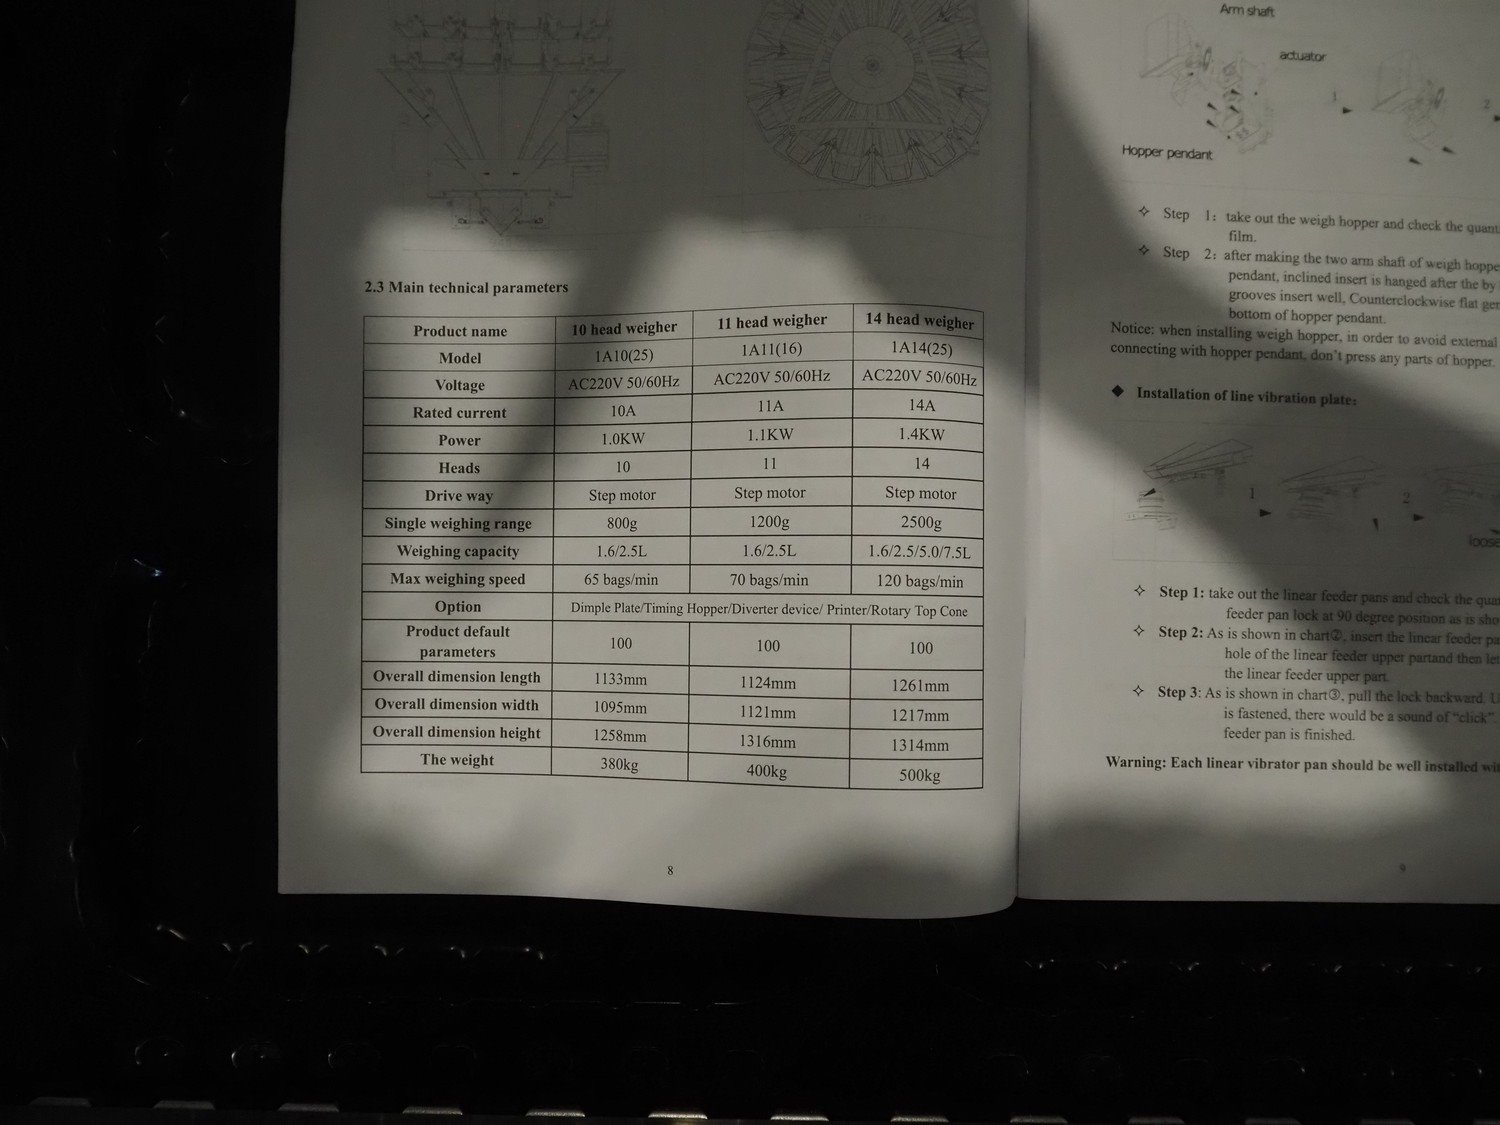 2.3 Main technical parameters
Product name 10 head weigher 11 head weigher 14 head weigher
Model 1A10(25) 1A11(16) 1A14(25)
Voltage AC220V 50/60Hz AC220V 50/60Hz AC220V 50/60Hz
Rated current 10A 11A 14A
Power 1.0KW 1.1KW 1.4KW
Heads 10 11 14
Drive way Step motor Step motor Step motor
Single weighing range 800g 1200g 2500g
Weighing capacity 1.6/2.5L 1.6/2.5L 1.6/2.5/5.0/7.5L
Max weighing speed 65 bags/min 70 bags/min 120 bags/min
Option Dimple Plate/Timing Hopper/Diverter device/ Printer/Rotary Top Cone
Product default
parameters 100 100 100
Overall dimension length 1133mm 1124mm 1261mm
Overall dimension width 1095mm 1121mm 1217mm
Overall dimension height 1258mm 1316mm 1314mm
The weight 380kg 400kg 500kg
8
Arm shaft
actuator
1 2
Hopper pendant
✧ Step 1: take out the weigh hopper and check the quant
film.
✧ Step 2: after making the two arm shaft of weigh hoppe
pendant, inclined insert is hanged after the by
grooves insert well, Counterclockwise flat ger
bottom of hopper pendant.
Notice: when installing weigh hopper, in order to avoid external
connecting with hopper pendant, don't press any parts of hopper.
◆ Installation of line vibration plate:
1 2
loose
✧ Step 1: take out the linear feeder pans and check the qua
feeder pan lock at 90 degree position as is sho
✧ Step 2: As is shown in chart②, insert the linear feeder pa
hole of the linear feeder upper partand then let
the linear feeder upper part.
✧ Step 3: As is shown in chart③, pull the lock backward. U
is fastened, there would be a sound of "click".
feeder pan is finished.
Warning: Each linear vibrator pan should be well installed wit
9